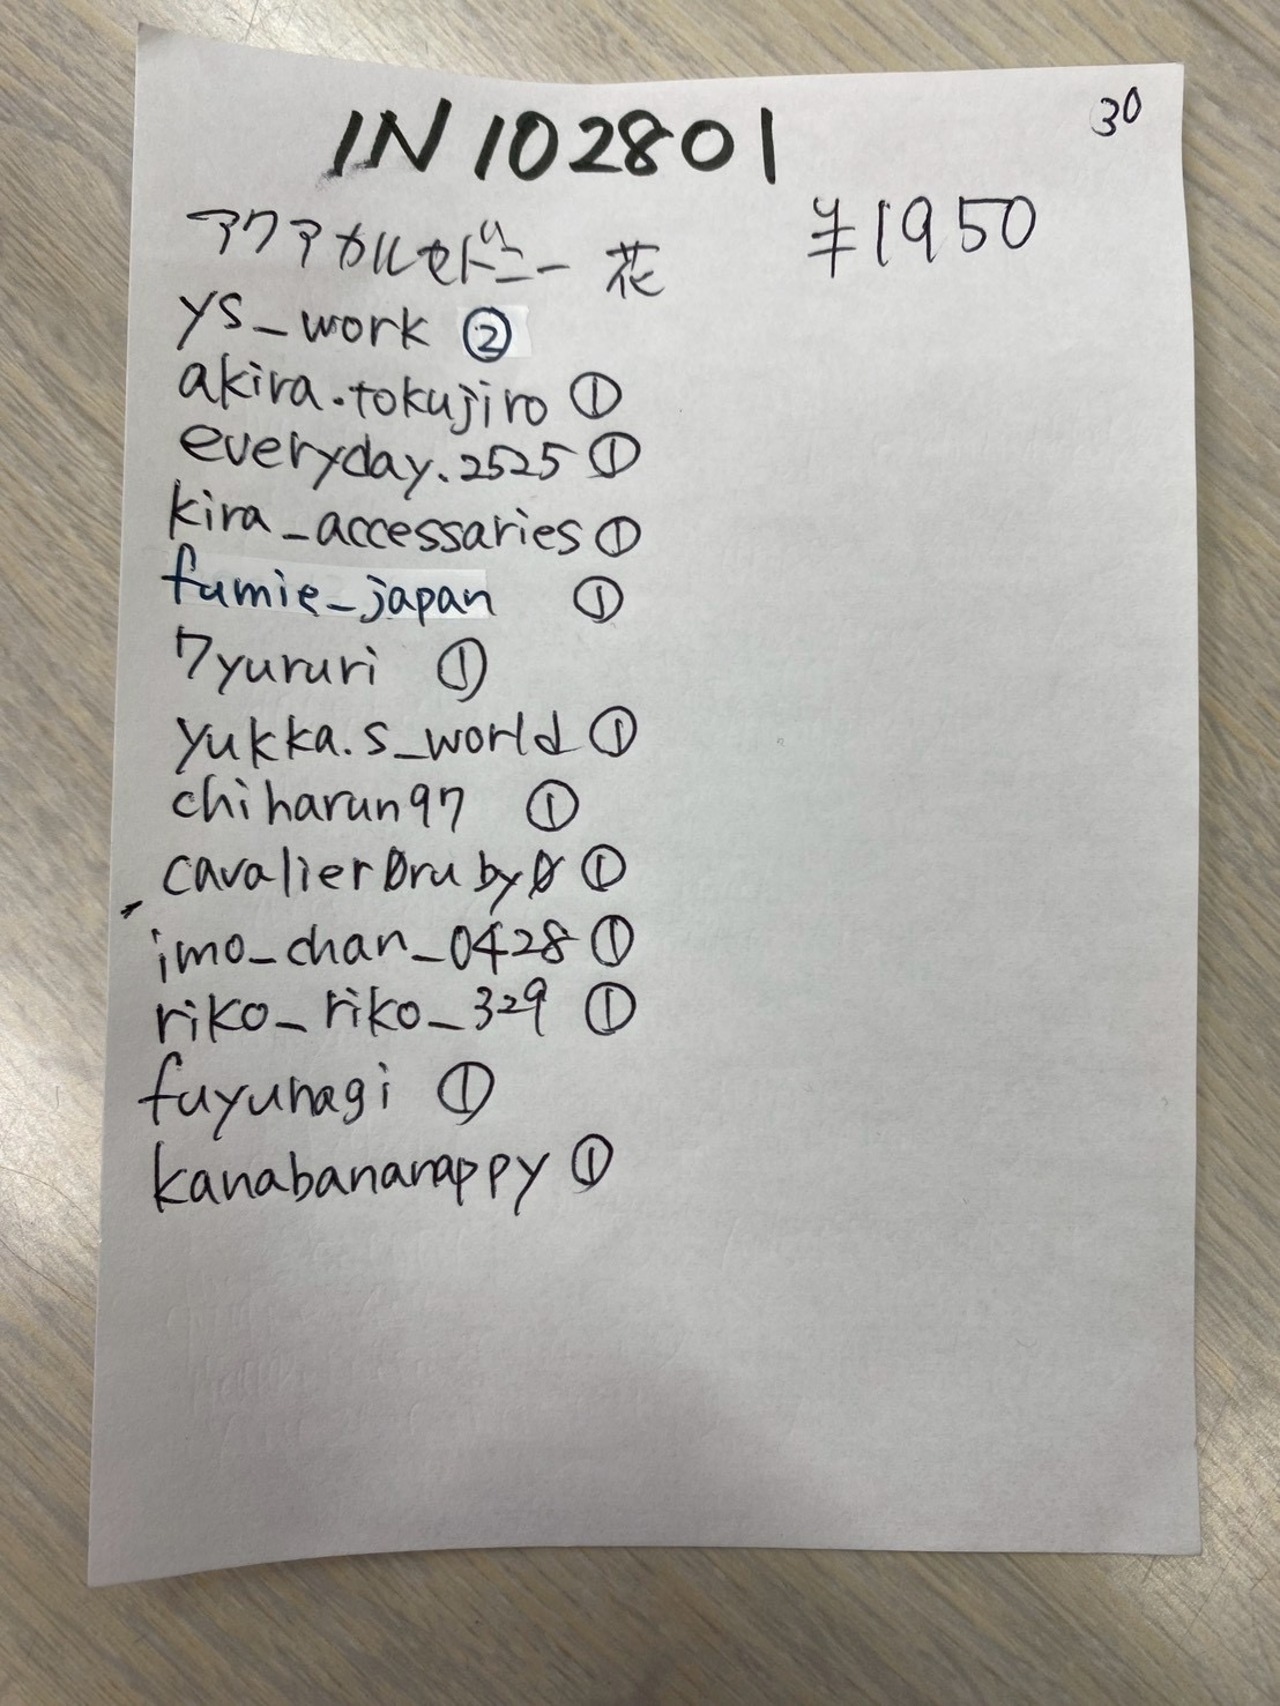 IN102801
30
アクアカルセドニー 花 ¥1950
ys_work ②
akira.tokujiro ①
everyday.2525 ①
kira_accessaries ①
fumie_japan ①
7yururi ①
yukka.s_world ①
chiharun97 ①
cavalier0ruby0 ①
imo_chan_0428 ①
riko_riko_329 ①
fuyunagi ①
kanabananappy ①